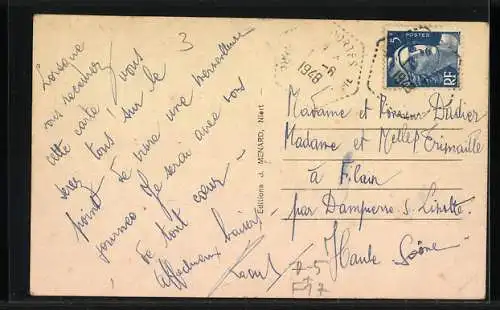 3
Lorsque
vous recevrez
cette carte, vous
serez tous sur le
point de vivre une merveilleuse
journée. Je serai avec vous
de tout cœur -
Affectueux baisers
Raoul
Editions J. MENARD, Niort -
1-6
1948
5F
POSTES
RF
Madame et Didier
Madame et Melle Trimaille
à Filain
par Dampierre s. Linotte
Haute Saône